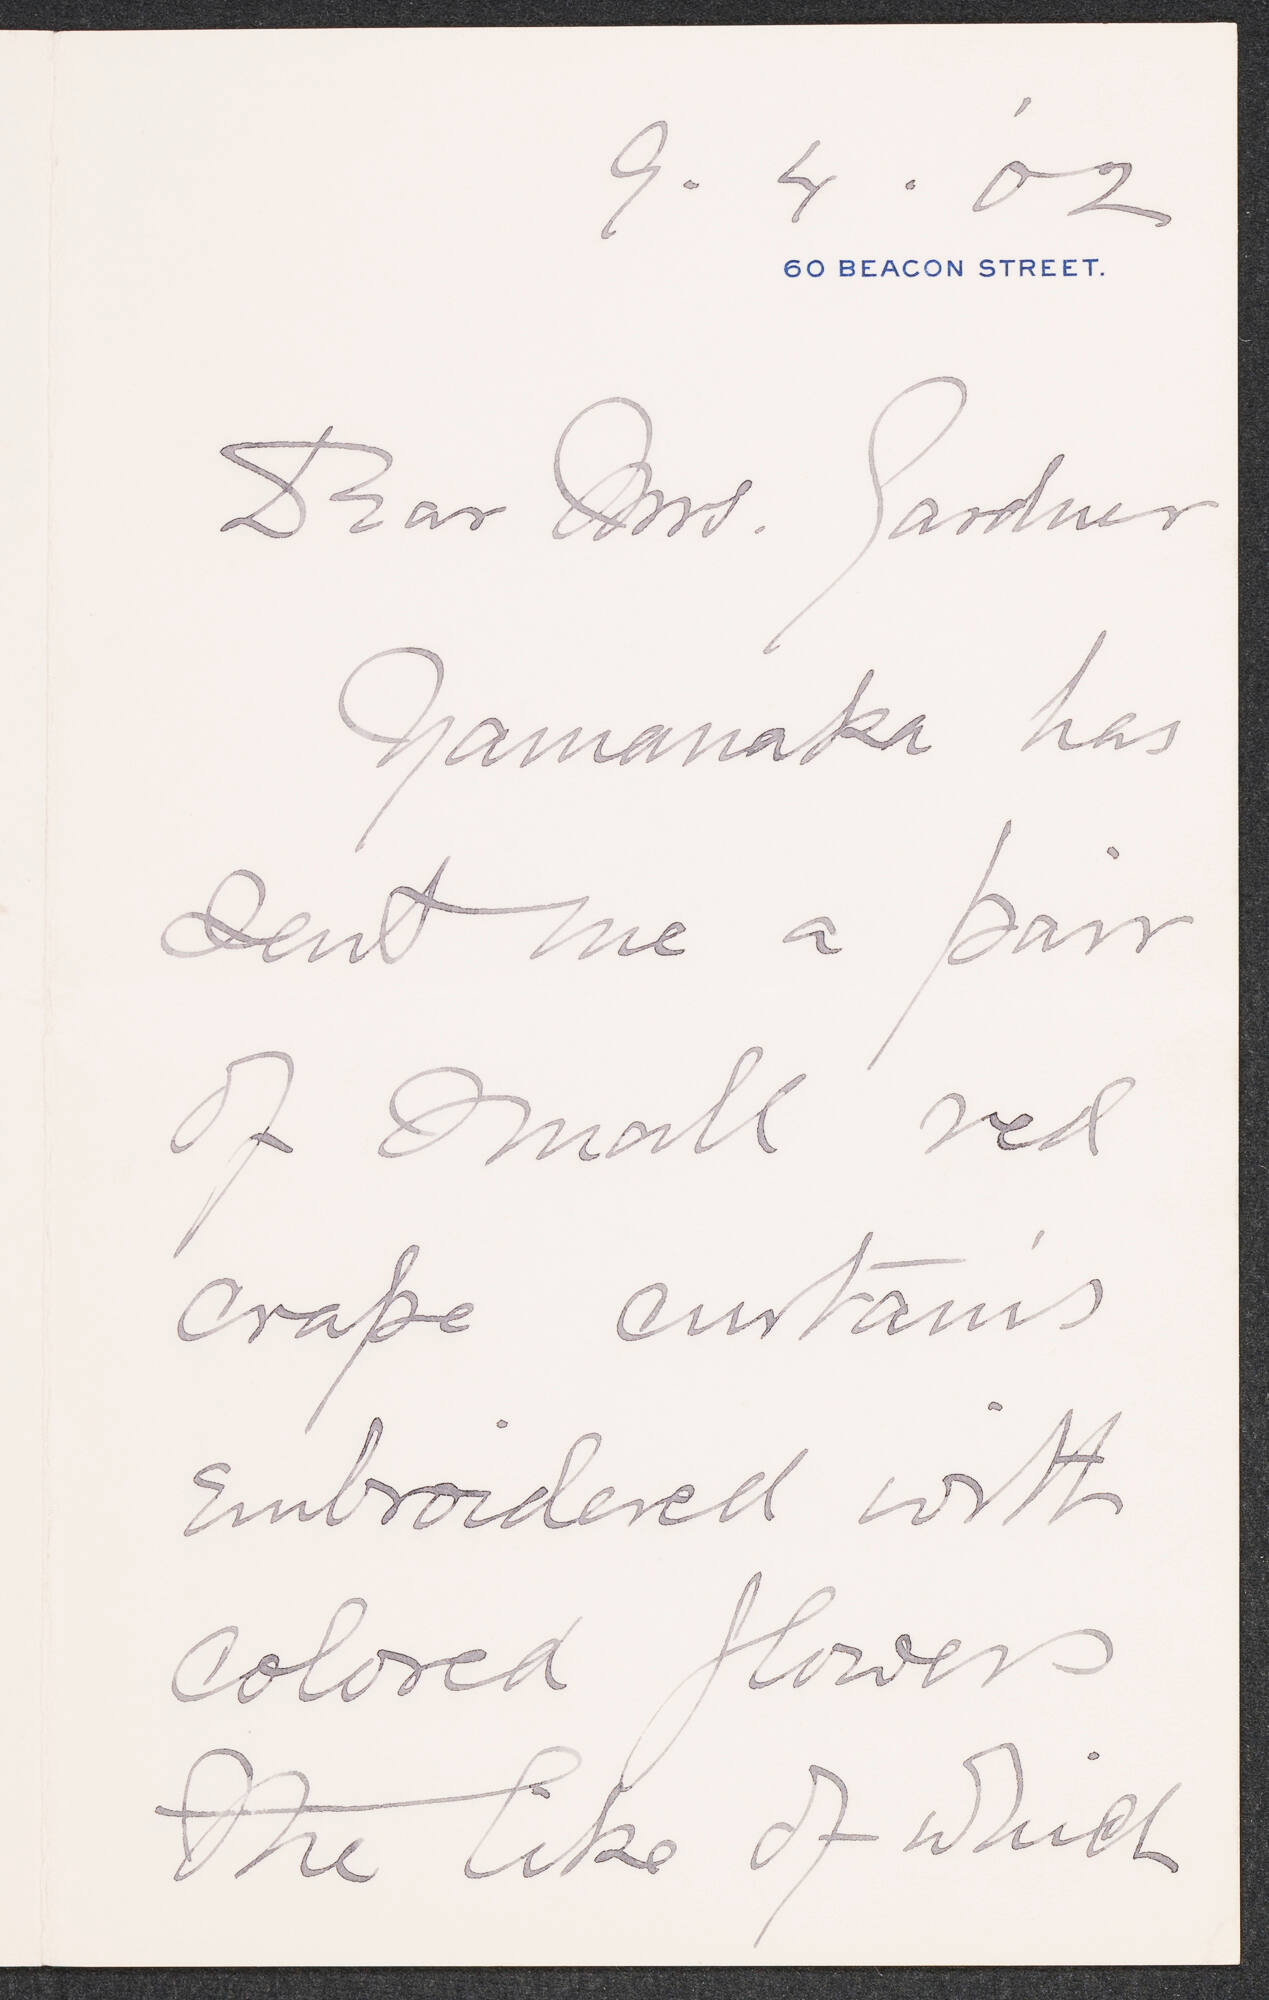 9. 4. '02
60 BEACON STREET.
Dear Mrs. Gardner
Yamanaka has
sent me a pair
of small red
crape curtains
embroidered with
colored flowers
the like of which